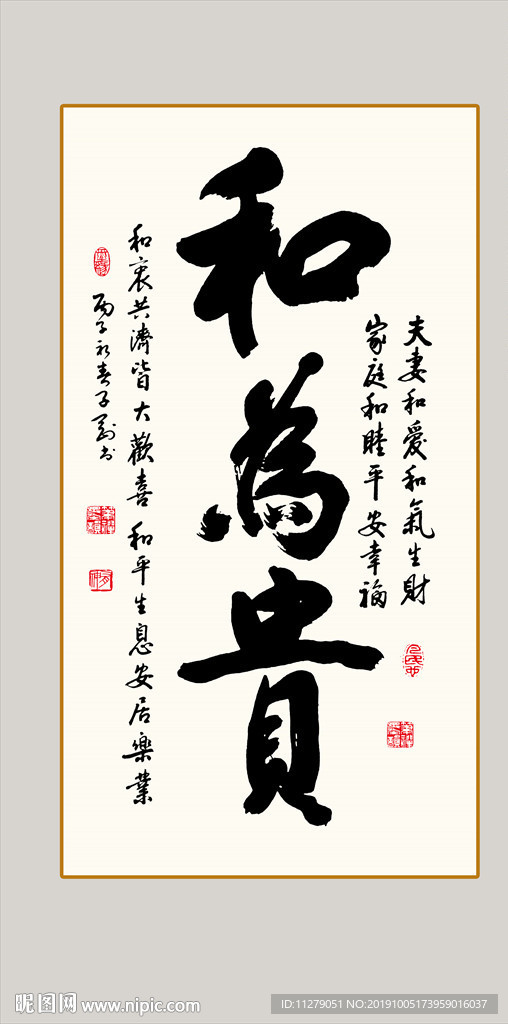 夫妻和爱和氣生財
家庭和睦平安幸福
和為貴
和衷共濟皆大歡喜 和平生息安居樂業
昵图网 www.nipic.com
ID:11279051 NO:20191005173959016037